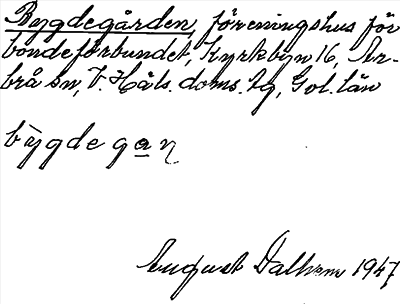 Bygdegården, föreningshus för
bondeförbundet, Kyrkbyn 16, Ar-
brå sn, V. Häls. doms. tg, Gvl. län
bygdegan
August Dalhem 1947